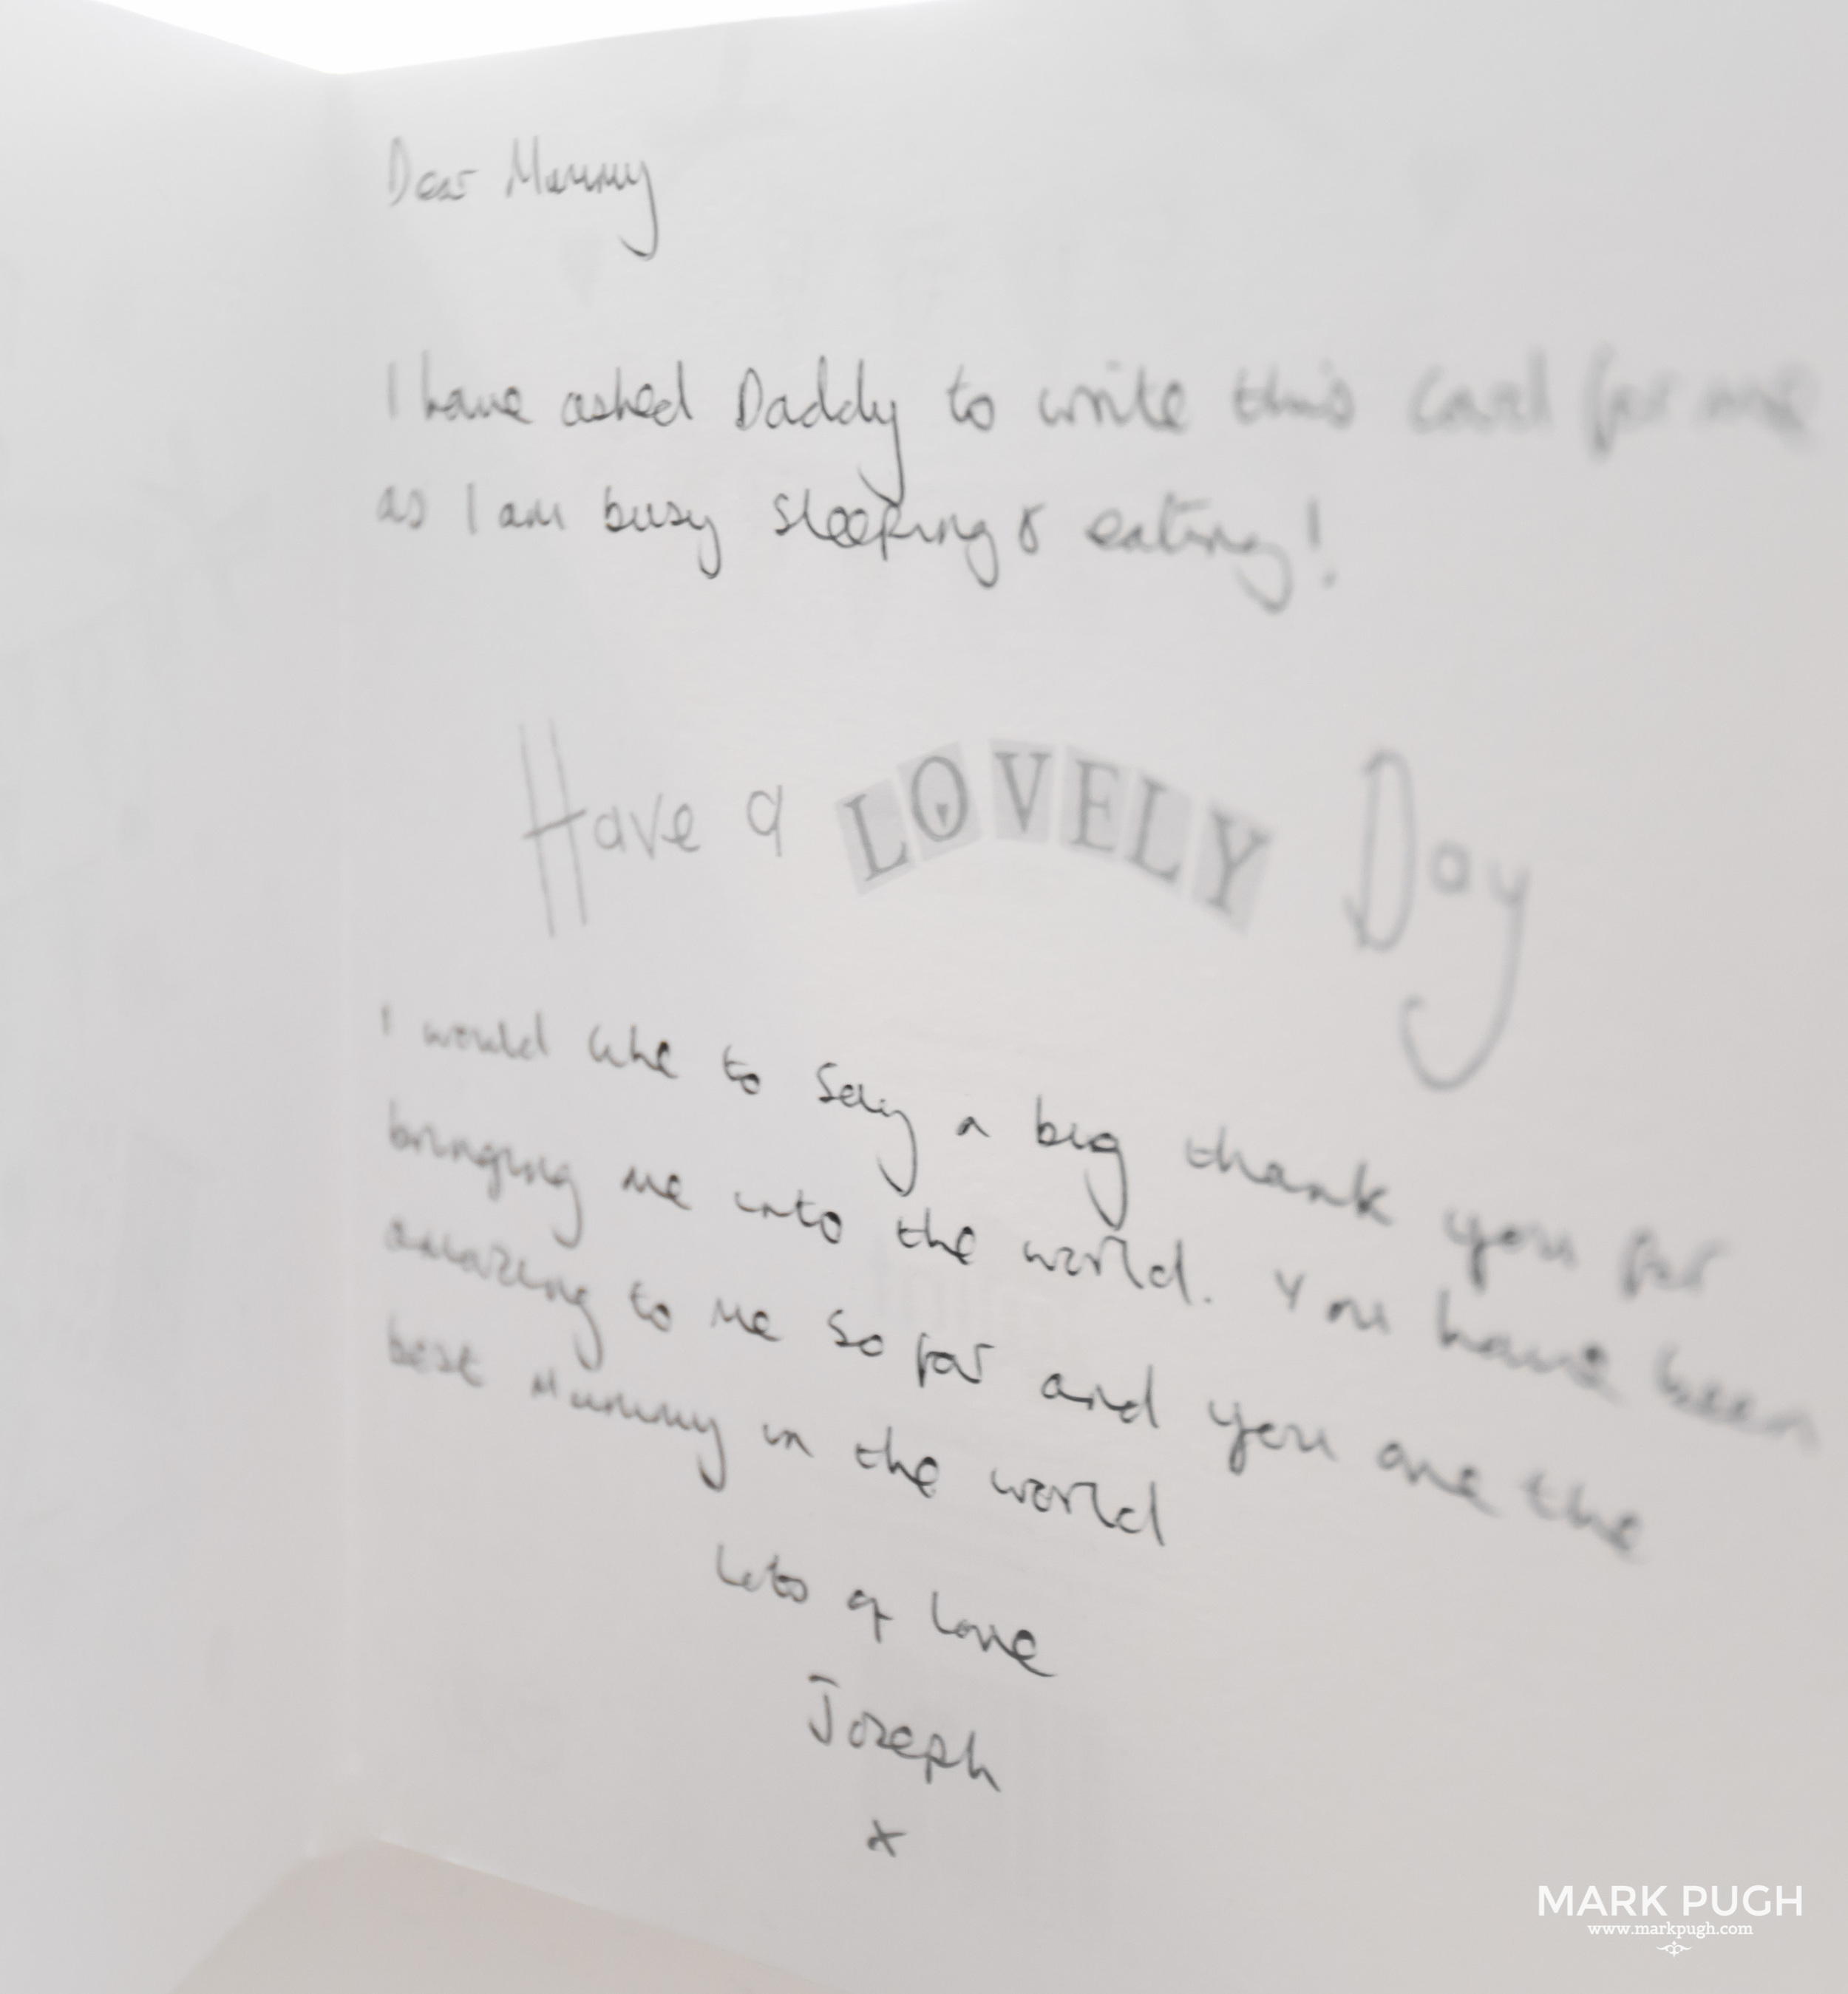 Dear Mummy
I have asked Daddy to write this card for me
as I am busy sleeping & eating!
Have a LOVELY Day
I would like to say a big thank you for
bringing me into the world. You have been
amazing to me so far and you are the
best Mummy in the world
Lots of love
Joseph
x
MARK PUGH
www.markpugh.com